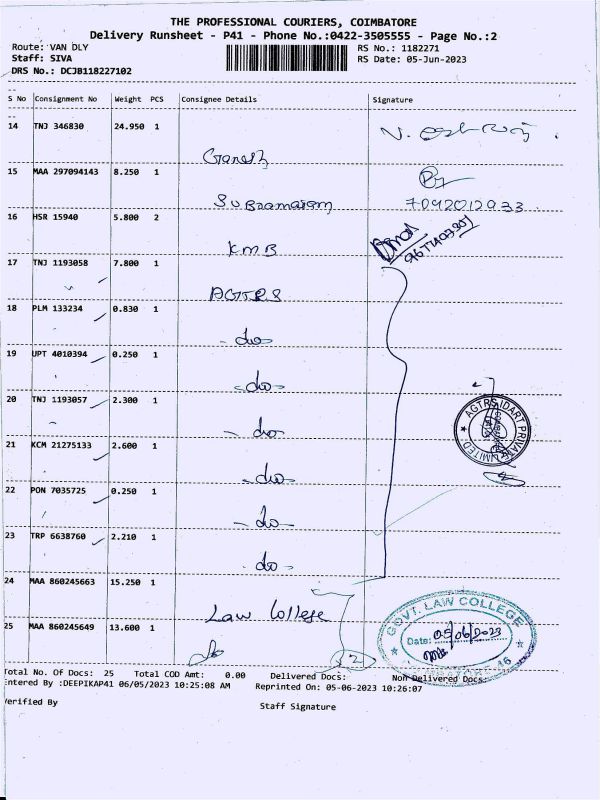 THE PROFESSIONAL COURIERS, COIMBATORE
Delivery Runsheet - P41 - Phone No.:0422-3505555 - Page No.:2
Route: VAN DLY
Staff: SIVA
DRS No.: DCJB118227102
RS No.: 1182271
RS Date: 05-Jun-2023
S No Consignment No Weight PCS Consignee Details Signature
14 TNJ 346830 24.950 1
Ganesh
15 MAA 297094143 8.250 1
Subramaniam
7092012933
16 HSR 15940 5.800 2
KMB
17 TNJ 1193058 7.800 1
AGTRS
18 PLM 133234 0.830 1
- do -
19 UPT 4010394 0.250 1
- do -
20 TNJ 1193057 2.300 1
- do -
AGTRS IDART PRIVATE LIMITED
21 KCM 21275133 2.600 1
- do -
22 PON 7035725 0.250 1
- do -
23 TRP 6638760 2.210 1
- do -
24 MAA 860245663 15.250 1
Law College
GOVT. LAW COLLEGE
Date: 05/06/2023
25 MAA 860245649 13.600 1
do
2
Total No. Of Docs: 25 Total COD Amt: 0.00 Delivered Docs: Non Delivered Docs:
Entered By :DEEPIKAP41 06/05/2023 10:25:08 AM Reprinted On: 05-06-2023 10:26:07
Verified By
Staff Signature